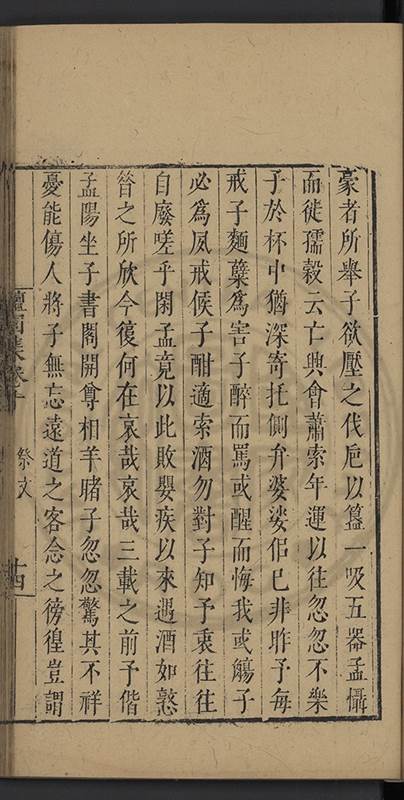 豪者所舉子欲壓之伐巵以簋一吸五器孟懾
而徙孺穀云亡興會蕭索年運以往忽忽不樂
子於杯中猶深寄托側弁婆娑侶已非昨予每
戒子麵蘖爲害子醉而罵或醒而悔我或觴子
必爲夙戒候子酣適索酒勿對子知予衷往往
自廢嗟乎閑孟竟以此敗嬰疾以來遇酒如憝
昝之所欣今復何在哀哉哀哉三載之前予偕
孟陽坐子書閣開尊相羊睹子忽忽驚其不祥
憂能傷人將子無忘遠道之客念之徬徨豈謂
檀園集卷十
祭文
十四